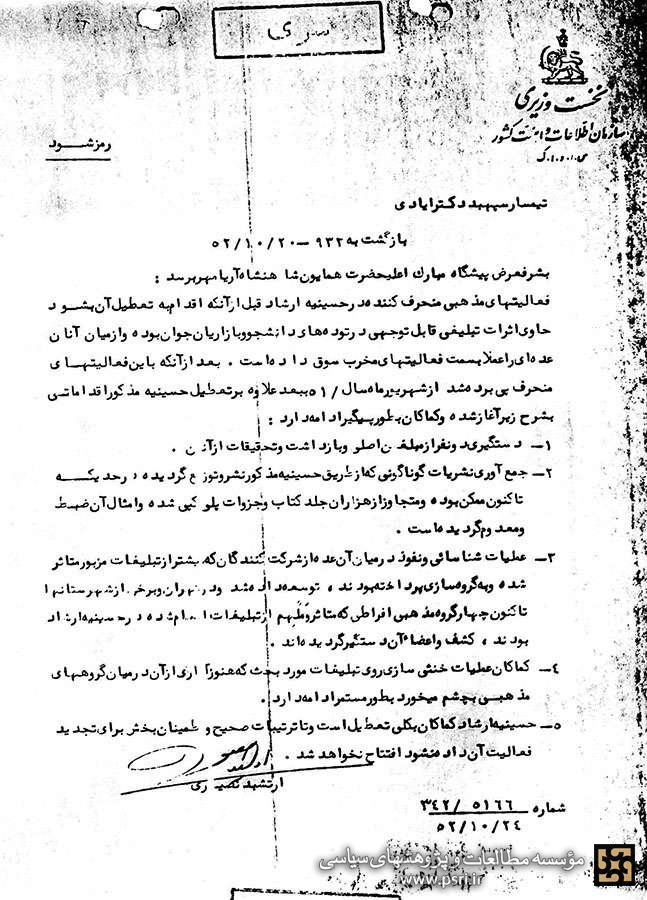 سری
نخست وزیری
سازمان اطلاعات و امنیت کشور
س.ا.و.ا.ک
رمز شود
تیمسار سپهبد دکتر ایادی
بازگشت به ۹۳۲ – ۵۲/۱۰/۲۰
بشرفعرض پیشگاه مبارك اعلیحضرت همایون شاهنشاه آریامهر برسد :
فعالیتهای مذهبی منحرف کننده در حسینیه ارشاد قبل از آنکه اقدام به تعطیل آن بشود
حاوی اثرات تبلیغی قابل توجهی در توده‌های دانشجو و بازاریان جوان بوده و از میان آنان
عده‌ای را عملا بسمت فعالیتهای مخرب سوق داده است . بعد از آنکه باین فعالیتهای
منحرف پی برده شد از شهریور ماه سال ۵۱/ ببعد علاوه بر تعطیل حسینیه مذکور اقداماتی
بشرح زیر آغاز شده و کماکان بطور پیگیر ادامه دارد :
۱– دستگیری دو نفر از مبلغین اصلی و بازداشت و تحقیقات از آنان .
۲– جمع آوری نشریات گوناگونی که از طریق حسینیه مذکور نشر و توزیع گردیده در حدیکه
تاکنون ممکن بوده و متجاوز از هزاران جلد کتاب و جزوات پلی کپی شده و امثال آن ضبط
و معدوم گردیده است .
۳– عملیات شناسائی و نفوذ در میان آن عده از شرکت کنندگان که بیشتر از تبلیغات مزبور متاثر
شده و به گروه سازی پرداخته بودند ، توسعه داده شد و در تهران و برخی از شهرستانها
تاکنون چهار گروه مذهبی افراطی که متاثر و ملهم از تبلیغات انجام شده در حسینیه ارشاد
بودند ، کشف و اعضاء آن دستگیر گردیده‌اند .
۴– کماکان عملیات خنثی سازی روی تبلیغات مورد بحث که هنوز آثاری از آن در میان گروههای
مذهبی بچشم میخورد بطور مستمر ادامه دارد .
۵– حسینیه ارشاد کماکان بکلی تعطیل است و تا ترتیبات صحیح و اطمینان بخش برای تجدید
فعالیت آن داده نشود افتتاح نخواهد شد .
ارتشبد نصیری
شماره ۵۱۶۶ /۳۴۲
۵۲/۱۰/۲۴
مؤسسه مطالعات و پژوهشهای سیاسی
www.psri.ir